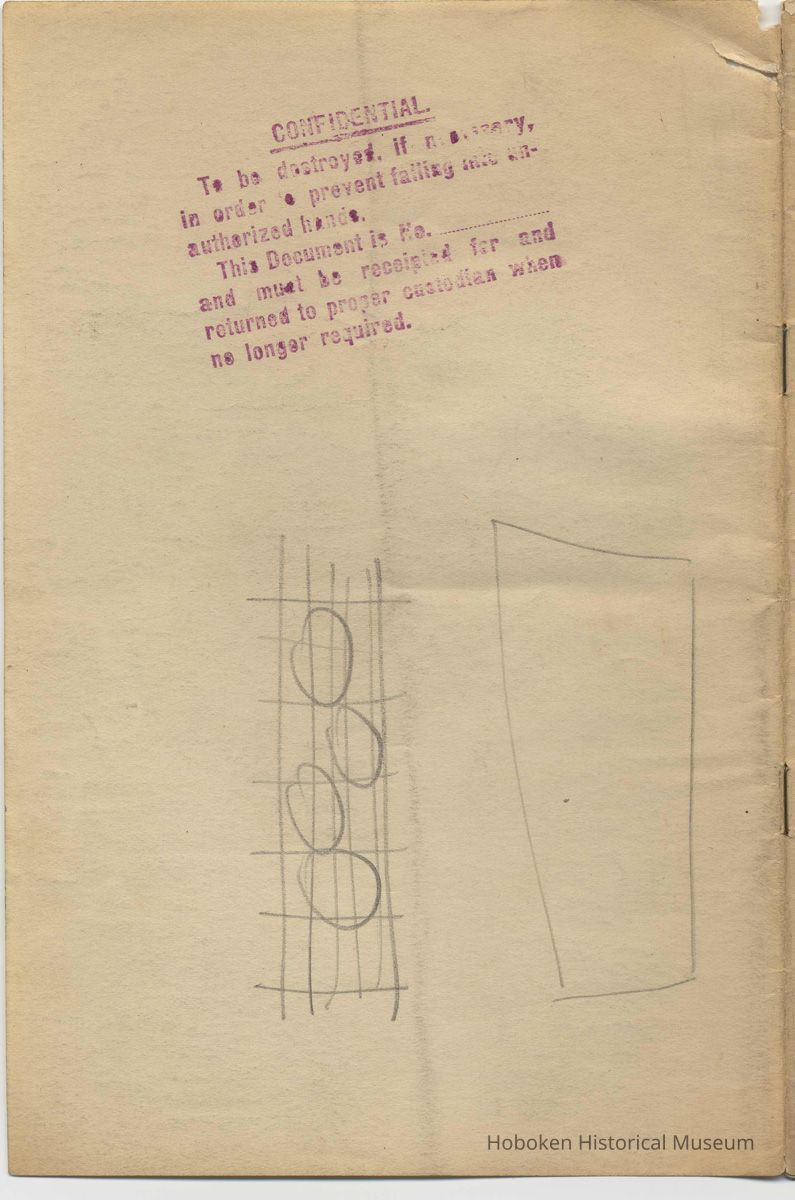 CONFIDENTIAL.
To be destroyed, if necessary,
in order to prevent falling into un-
authorized hands.
This Document is No.
and must be receipted for and
returned to proper custodian when
no longer required.
Hoboken Historical Museum